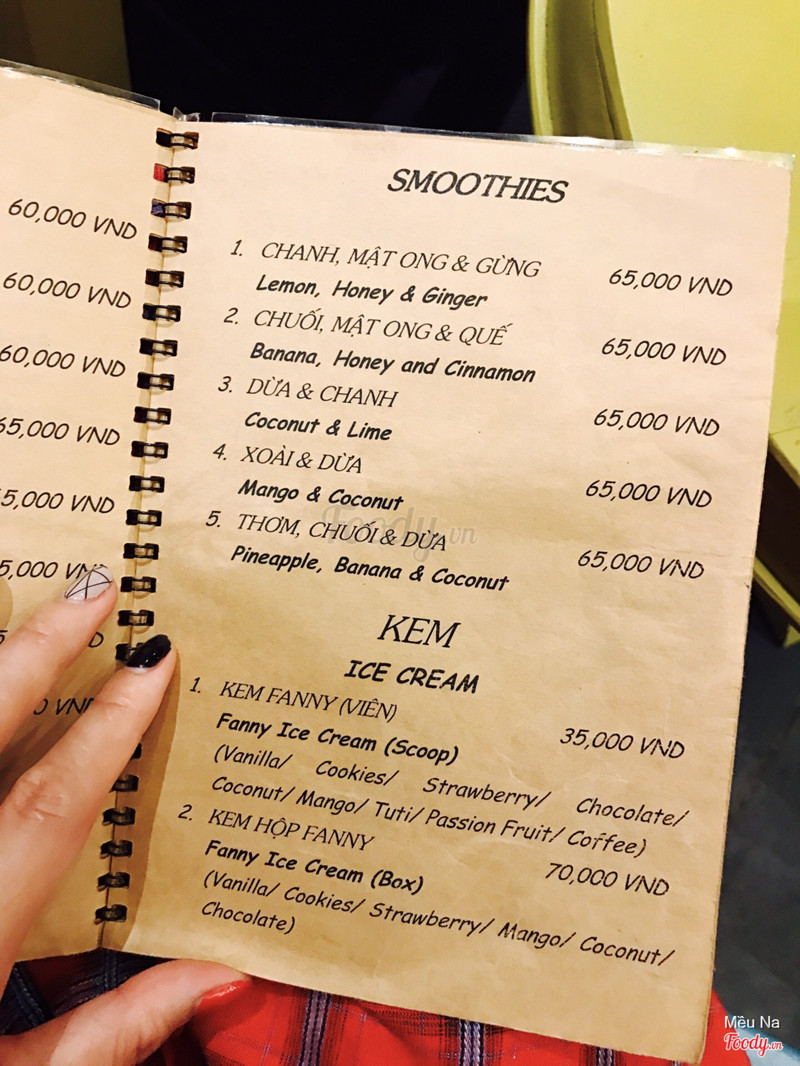 60,000 VND
60,000 VND
60,000 VND
65,000 VND
5,000 VND
5,000 VND
SMOOTHIES
1. CHANH, MẬT ONG & GỪNG 65,000 VND
Lemon, Honey & Ginger
2. CHUỐI, MẬT ONG & QUẾ 65,000 VND
Banana, Honey and Cinnamon
3. DỪA & CHANH 65,000 VND
Coconut & Lime
4. XOÀI & DỪA 65,000 VND
Mango & Coconut
5. THƠM, CHUỐI & DỪA 65,000 VND
Pineapple, Banana & Coconut
Foody.vn
KEM
ICE CREAM
1. KEM FANNY (VIÊN) 35,000 VND
Fanny Ice Cream (Scoop)
(Vanilla/ Cookies/ Strawberry/ Chocolate/
Coconut/ Mango/ Tuti/ Passion Fruit/ Coffee)
2. KEM HỘP FANNY 70,000 VND
Fanny Ice Cream (Box)
(Vanilla/ Cookies/ Strawberry/ Mango/ Coconut/
Chocolate)
Mều Na
Foody.vn